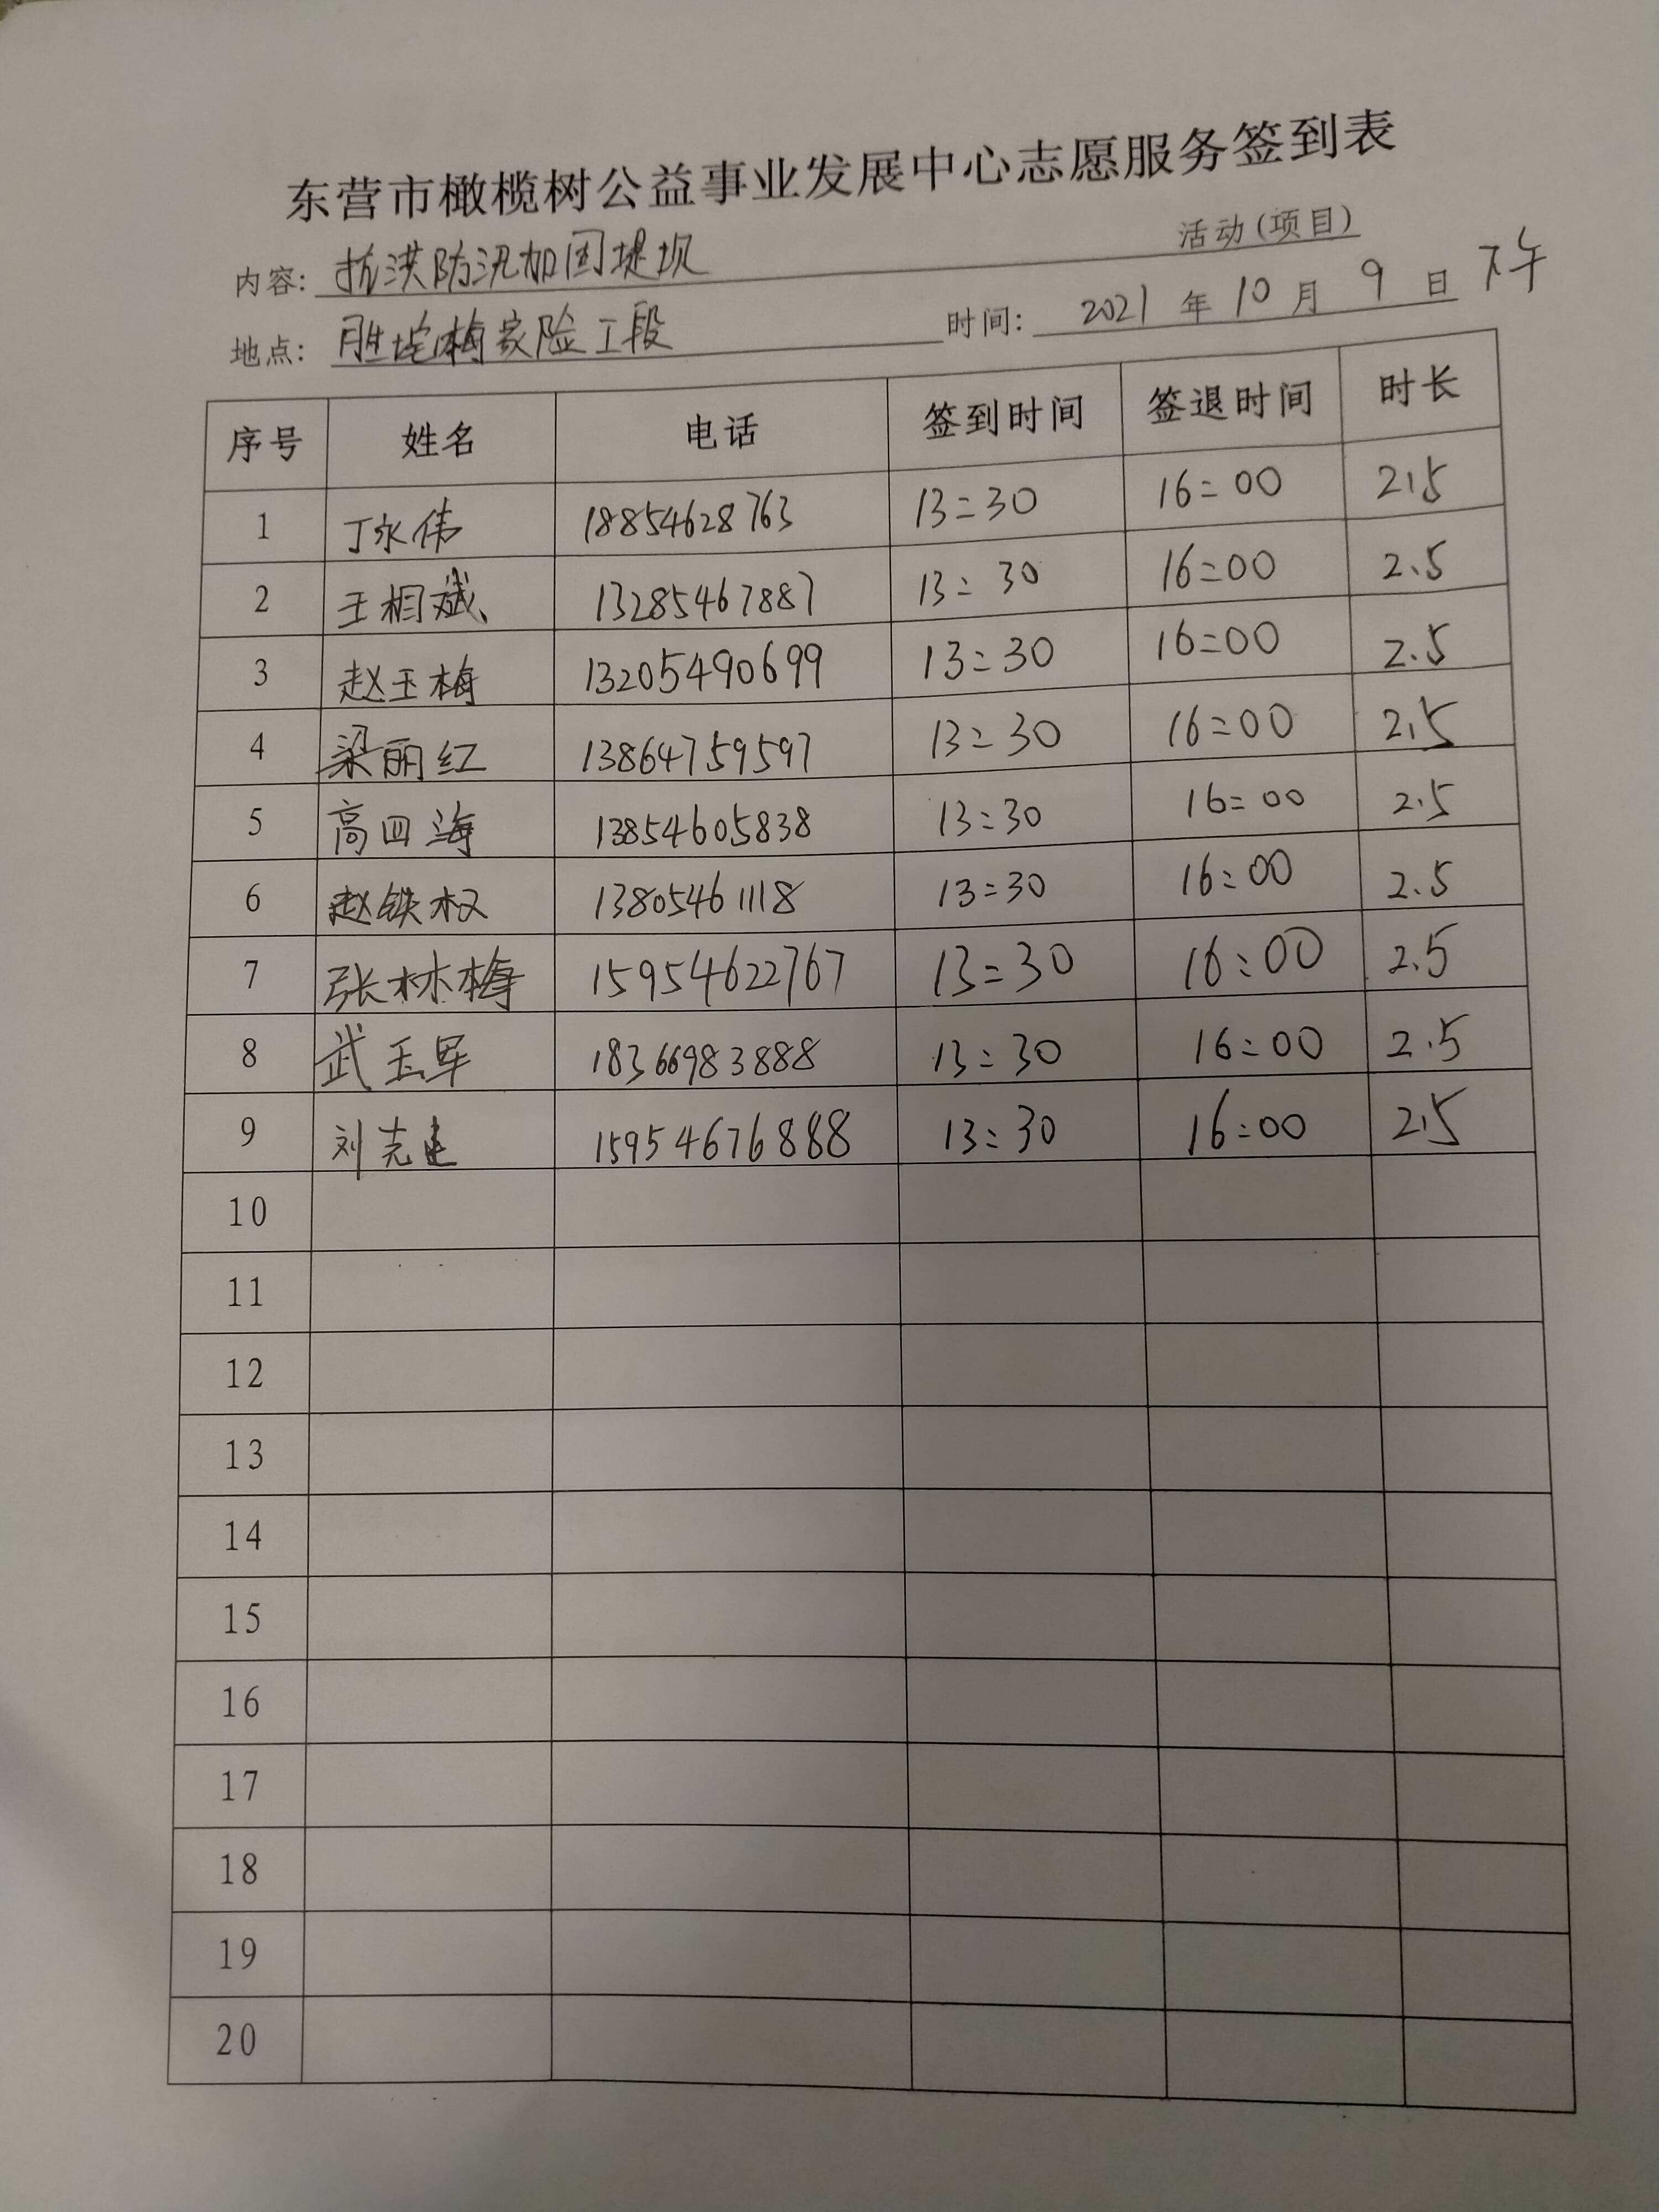 东营市橄榄树公益事业发展中心志愿服务签到表
内容: 抗洪防汛加固堤坝 活动(项目)
地点: 胜坨梅家险工段 时间: 2021 年 10 月 9 日 下午
序号 姓名 电话 签到时间 签退时间 时长
1 丁永伟 18854628763 13:30 16:00 2.5
2 王相斌 13285467887 13:30 16:00 2.5
3 赵玉梅 13205490699 13:30 16:00 2.5
4 梁丽红 13864759597 13:30 16:00 2.5
5 高四海 13854605838 13:30 16:00 2.5
6 赵铁权 13805461118 13:30 16:00 2.5
7 张林梅 15954622767 13:30 16:00 2.5
8 武玉军 18366983888 13:30 16:00 2.5
9 刘克 15954676888 13:30 16:00 2.5
10
11
12
13
14
15
16
17
18
19
20